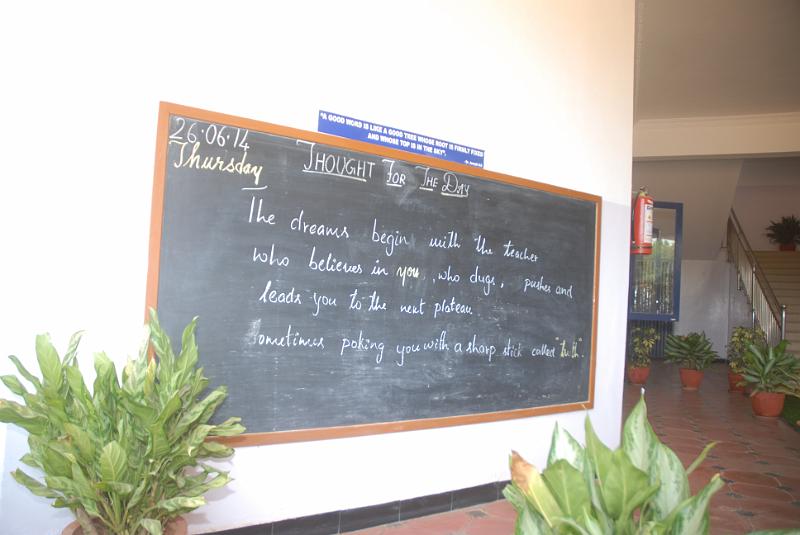 "A GOOD WORD IS LIKE A GOOD TREE WHOSE ROOT IS FIRMLY FIXED
AND WHOSE TOP IS IN THE SKY".
26.06.14
Thursday
THOUGHT FOR THE DAY
The dreams begin with the teacher
who believes in you, who dugs, pushes and
leads you to the next plateau
sometimes poking you with a sharp stick called "truth".